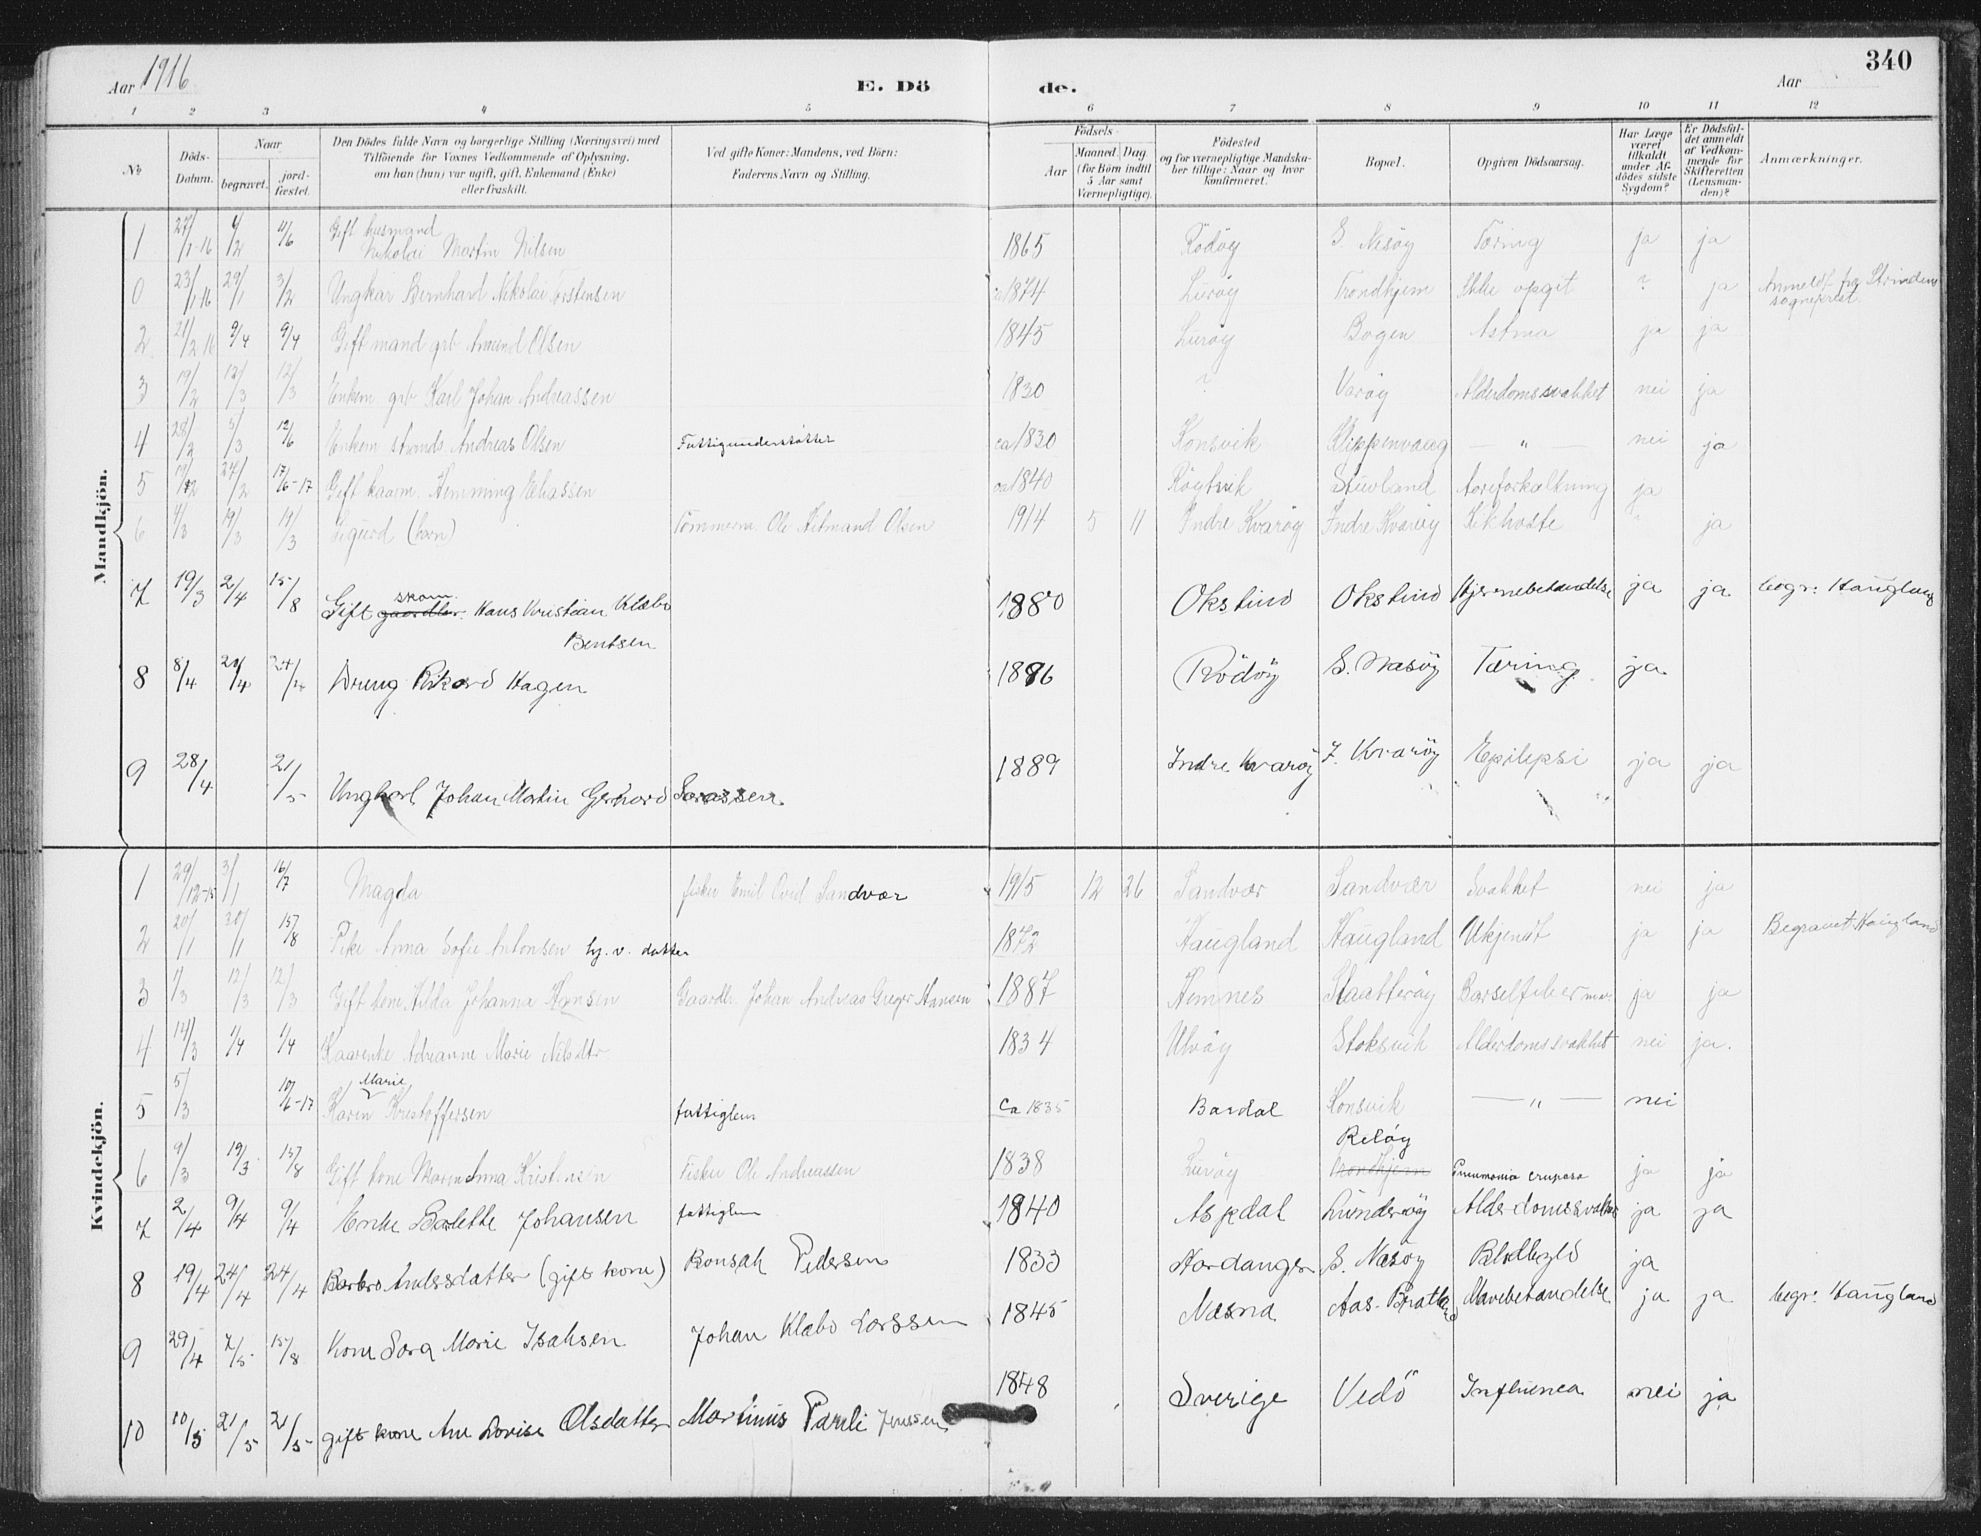 Aar 1916
E. Dö
de.
Aar
340
1 2 3 4 5 6 7 8 9 10 11 12
No
Döds-Datum.
Naar
begravet.
jord-fæstet.
Den Dödes fulde Navn og borgerlige Stilling (Næringsvei) med
Tilföiende for Voxnes Vedkommende af Oplysning,
om han (hun) var ugift, gift, Enkemand (Enke)
eller fraskilt.
Ved gifte Koner: Mandens, ved Börn:
Faderens Navn og Stilling.
Födsels-
Aar
Maaned. Dag
(for Börn indtil
5 Aar samt
Værnepligtige).
Födested
og for værnepligtige Mandska-
ber tillige: Naar og hvor
konfirmeret.
Bopæl.
Opgiven Dödsaarsag.
Har Læge
været
tilkaldt
under Af-
dödes sidste
Sygdom?
Er Dödsfal-
det anmeldt
af Vedkom-
mende for
Skifteretten
(Lensman-
den)?
Anmærkninger.
Mandkjön.
1 27/1-16 4/2 11/6 Gift husmand
Nikolai Martin Nilsen 1865 Rödöy S. Nesöy Tæring ja ja
0 23/1-16 29/1 3/2 Ungkar Bernhard Nikolai Torstensen ca 1874 Luröy Trondhjem Ikke opgit ? ja Anmeldt fra Strinden
sogneprest.
2 21/2 16 9/4 9/4 Gift mand grb Amund Olsen 1845 Luröy Bogen Astma ja ja
3 19/2 12/3 12/3 Enkem grb Karl Johan Andreassen 1830 ? Varöy Alderdomssvakhet nei ja
4 28/2 5/3 12/6 Enkem strands. Andreas Olsen Fattigunderstöttet ca 1830 Konsvik Klippenvaag — " — nei ja
5 19/2 27/2 17/6-17 Gift kaarm. Hemming Eliassen ca 1840 Röytvik Stuvland Aareforkalkning ja
6 4/3 19/3 19/3 Sigurd (barn) Tömmerm. Ole Hilmand Olsen 1914 5 11 Indre Kvaröy Indre Kvaröy Kikhoste " ja
7 19/3 2/4 15/8 Gift gaardbr. skom. Hans Kristian Klæbo
Bentsen 1880 Okstind Okstind Hjernebetændelse ja ja begr: Haugland
8 8/4 24/4 24/4 Dreng Rikard Hagen 1886 Rödöy S. Nesöy Tæring ja
9 28/4 21/5 Ungkarl Johan Martin Gerhard Larassen 1889 Indre Kvaröy I. Kvaröy Epilepsi ja ja
Kvindekjön.
1 29/12-15 3/1 16/7 Magda fisker Emil Ovid Sandvær 1915 12 26 Sandvær Sandvær Svakhet nei ja
2 20/1 30/1 15/8 Pike Anna Sofie Antonsen hj. v. datter 1872 Haugland Haugland Ukjendt ja ja Begravet Haugland
3 1/3 12/3 12/3 Gift kone Hilda Johanna Hansen Gaardbr. Johan Andreas Greger Hansen 1887 Hemnes Slaatteröy Barselfeber ja ja
4 14/3 1/4 1/4 Kaarenke Adrianne Marie Nilsdtr 1834 Ulvöy Stoksvik Alderdomssvakhet nei ja.
5 5/3 10/6-17 Karen Marie Kristoffersen fattiglem ca 1835 Bardal Konsvik — " — nei
6 9/3 19/3 15/8 Gift kone Maren Anna Kristensen Fisker Ole Andreassen 1838 Luröy Trondhjem Relöy Pneumonia cruposa ja ja
7 2/4 9/4 9/4 Enke Barlette Johansen fattiglem 1840 Aspdal Lunderöy Alderdomssvakhet ja ja
8 19/4 24/4 24/4 Barbro Andersdatter (gift kone) Bonsak Pedersen 1833 Hardanger S. Nesöy ja
9 29/4 7/5 15/8 Kone Sara Marie Isaksen Johan Klæbo Larssen 1845 Næsna Aas- Bratland Mavebetændelse ja ja begr: Haugland
10 10/5 21/5 21/5 gift kone Ane Lovise Olsdatter Martinus Pareli Jenssen 1848 Sverige Vedö Influenca nei ja